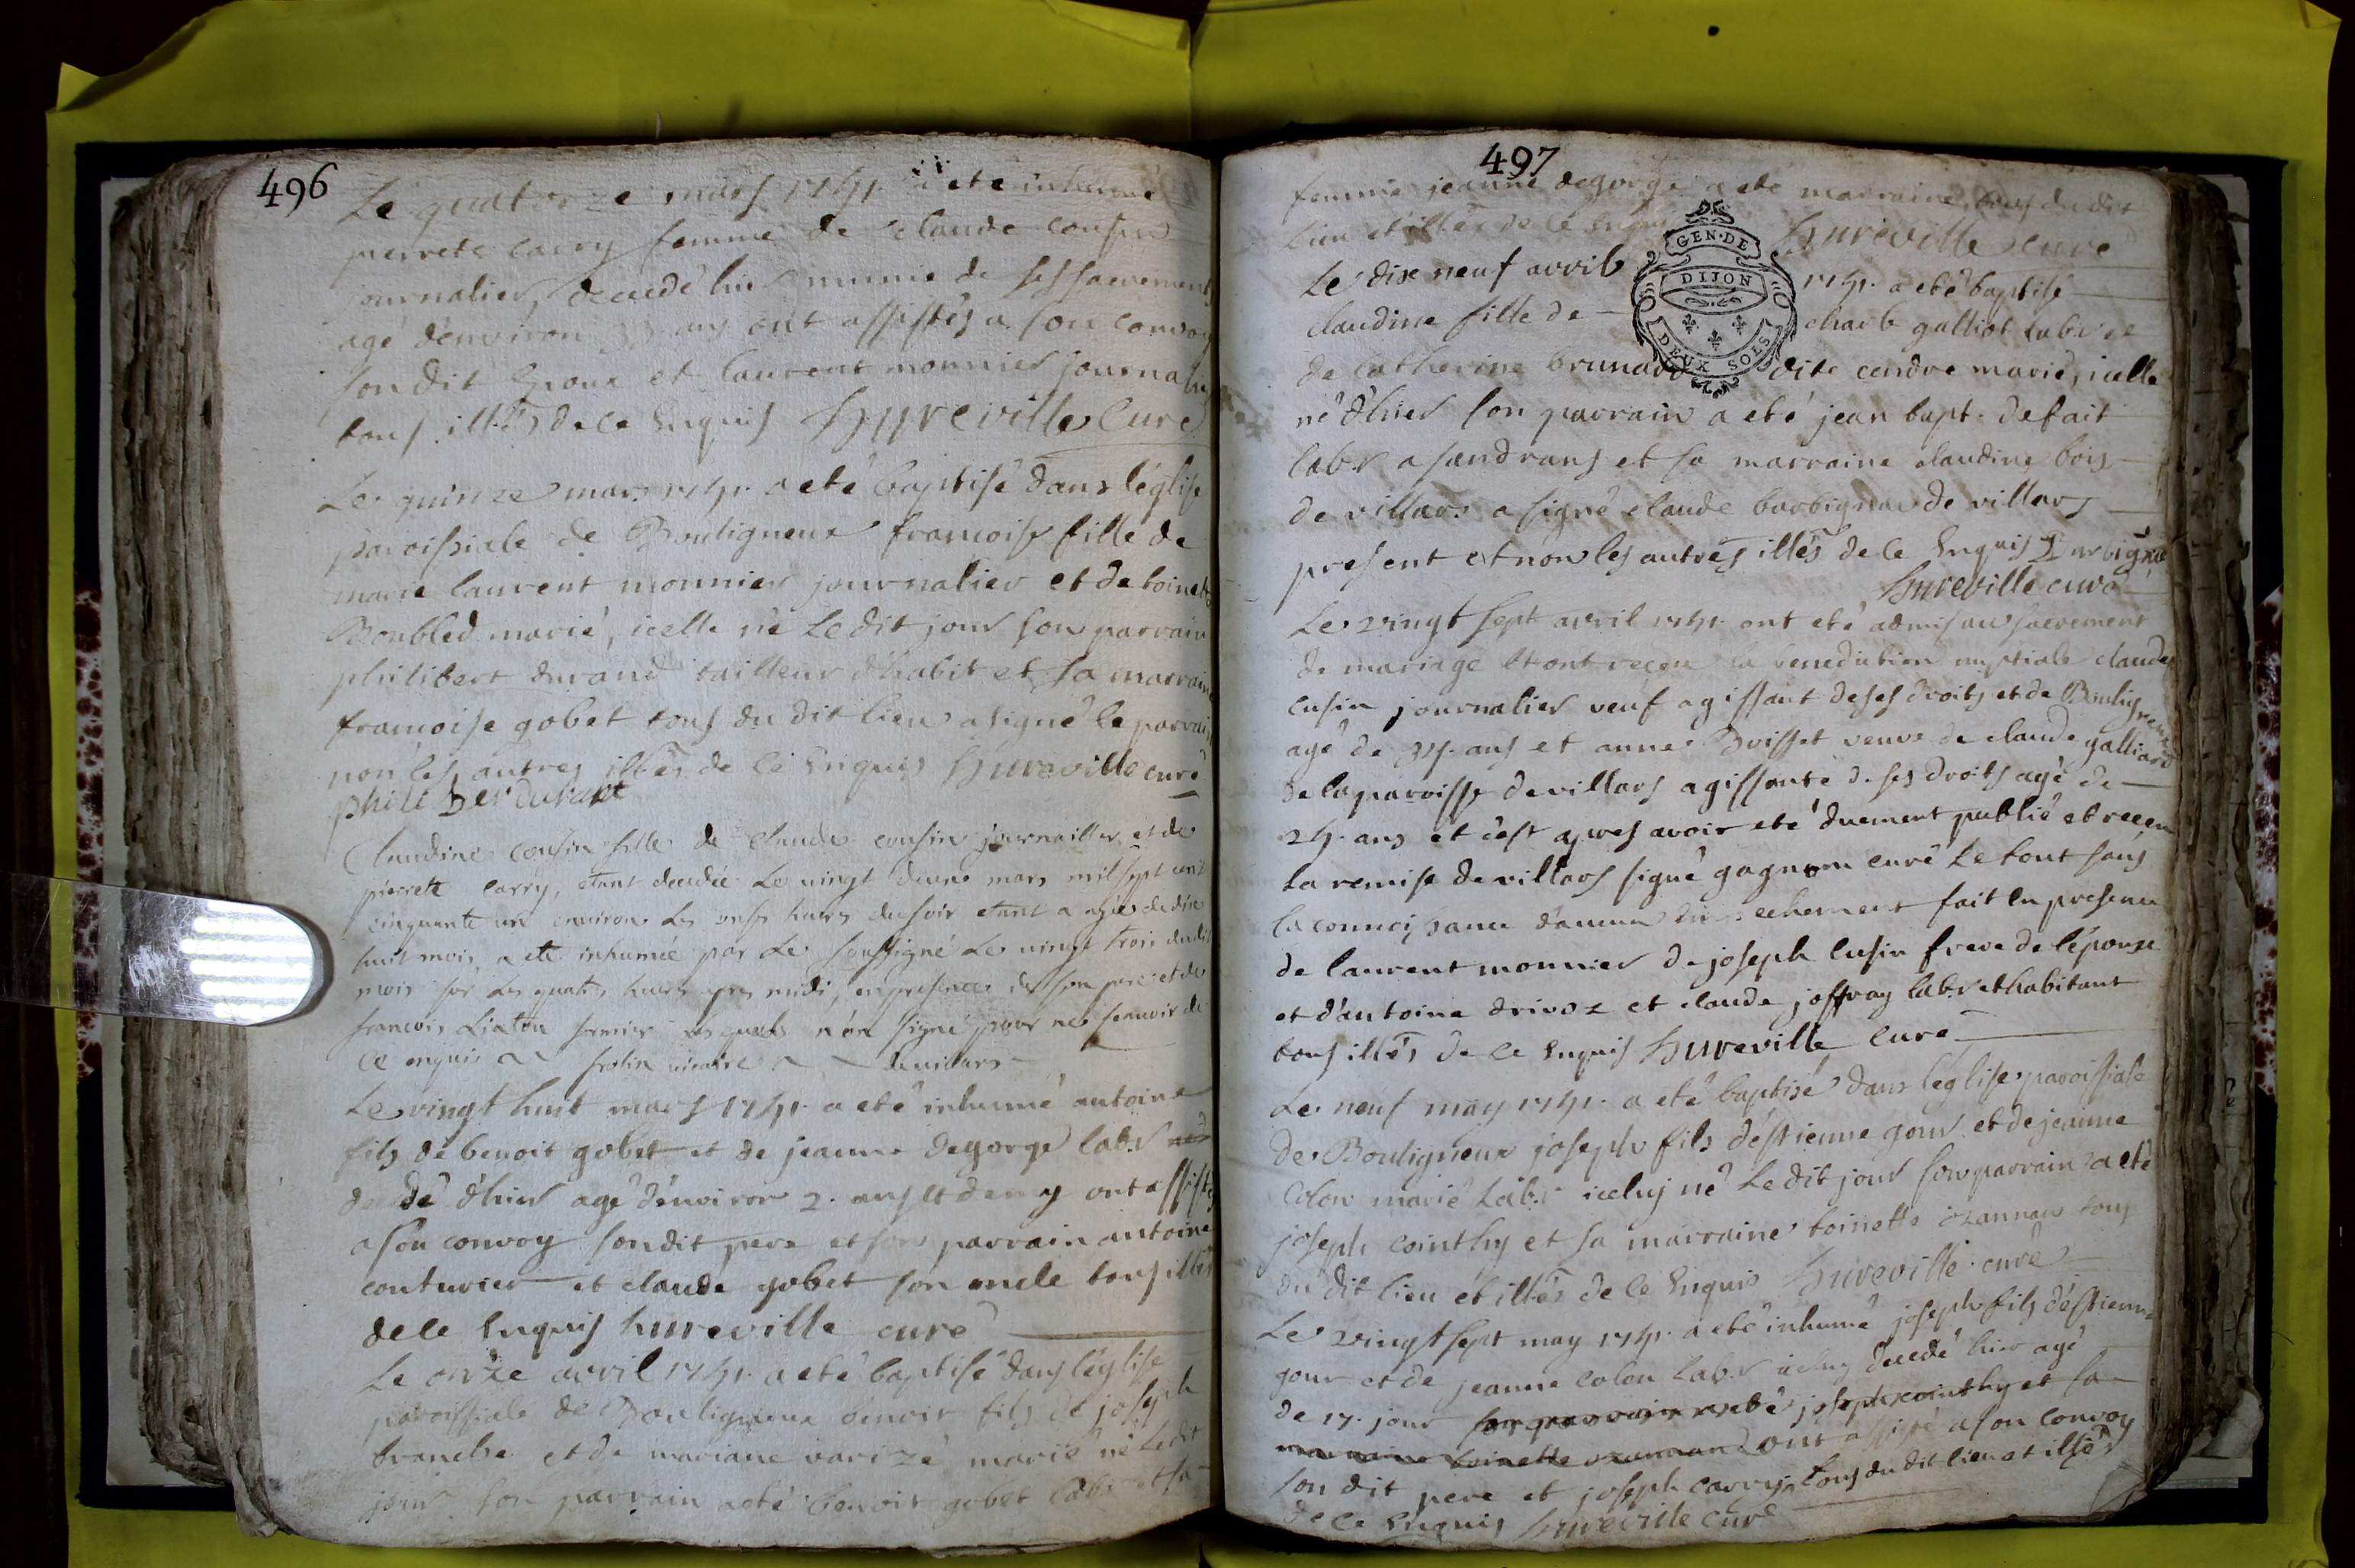 496
Le quatorze mars 1751. a ete inhumé
pierrete carry femme de claude cousin
journalier, decedé hier munie de ses sacrements
agé d'environ ans ont assistés a son convoy
son dit Epoux et laurent monnier journalier
tous illés de ce Enquis hureville Curé
Le quinze mars 1751. a eté baptisé dans léglise
paroissiale de Bouligneux francoise fille de
maire laurent monnier journalier et de toinette
Boubled marié, icelle né Le dit jour son parrain
philibert durand tailleur d'habit et sa marraine
francoise gobet tous du dit lieu a signé le parrain
non les autres illés de ce Enquis hureville curé
phili ber durant
Claudine cousin fille de claude cousin journaillier et de
pierrete carry, etant decedée Le vingt deux mars mil sept cent
cinquante un environ les onse heures du soir etant agée de dix
huit mois, a ete inhumée par Le soussigné Le vingt trois dudit
mois sur Les quatre heures apres midi, en presences de son pere et de
francois Liaton fermier Lesquels n'on signé pour ne scavoir de
ce enquis vicaire de villars
Le vingt huit mars 1751. a eté inhumé antoine
fils de benoit gobet et de jeanne degorge labr
decedé d'hier agé d'environ 2. ans et demy ont assistés
a son convoy son dit pere et son parrain antoine
couturier et claude gobet son oncle tous illés
de ce Enquis hureville curé
Le onze avril 1751. a eté baptisé dans léglise
paroissiale de Bouligneux benoit fils de joseph
branche et de mariane varizé marié né Le dit
jour son parrain a eté benoit gobet labr et sa
497
femme jeanne degorge a ete marraine tous du dit
lieu et illés de ce Enquis hureville curé
Le dix neuf avril 1751. a eté baptisé
GEN·DE
DIJON
DEUX SOLS
claudine fille de charle galliot labr et
de Catherine brunard dite cendre marié, icelle
né d'hier son parrain a eté jean bapt. defait
labr a sandrans et sa marraine claudine bois
de villars a signé claude barbignar de villars
present et non les autres illés de ce Enquis
hureville curé
Le vingt sept avril 1751. ont eté admis au sacrement
de mariage et ont receu la benediction nuptiale claude
cusin journalier veuf agissant de ses droits et de Bouligneux
agé de 35. ans et anne Brisset veuve de claude galliard
de la paroisse de villars agissante de ses droits agé de
25. ans et c'est apres avoir eté duement publié et receu
la remise de villars signé gagnon curé Le tout sans
la connoissance d'aucun empechement fait en presence
de laurent monnier de joseph cusin frere de l'epoux
et d'antoine drivoz et claude joffray labr et habitant
tous illés de ce Enquis hureville curé
Le neuf may 1751. a eté baptisé dans léglise paroissiale
de Bouligneux joseph fils d'estienne gour et de jeanne
Colon marié Labr iceluy né Le dit jour son parrain a eté
joseph cointhy et sa marraine toinette ozannau tous
du dit lieu et illés de ce Enquis hureville curé
Le vingt sept may 1751. a eté inhumé joseph fils d'estienne
gour et de jeanne colon Labr iceluy decedé hier agé
de 17. jour son parrain a eté joseph cointhy et sa
marraine toinette ozannau ont assisté a son convoy
son dit pere et joseph carry tous du dit lieu et illés
de ce Enquis hureville curé